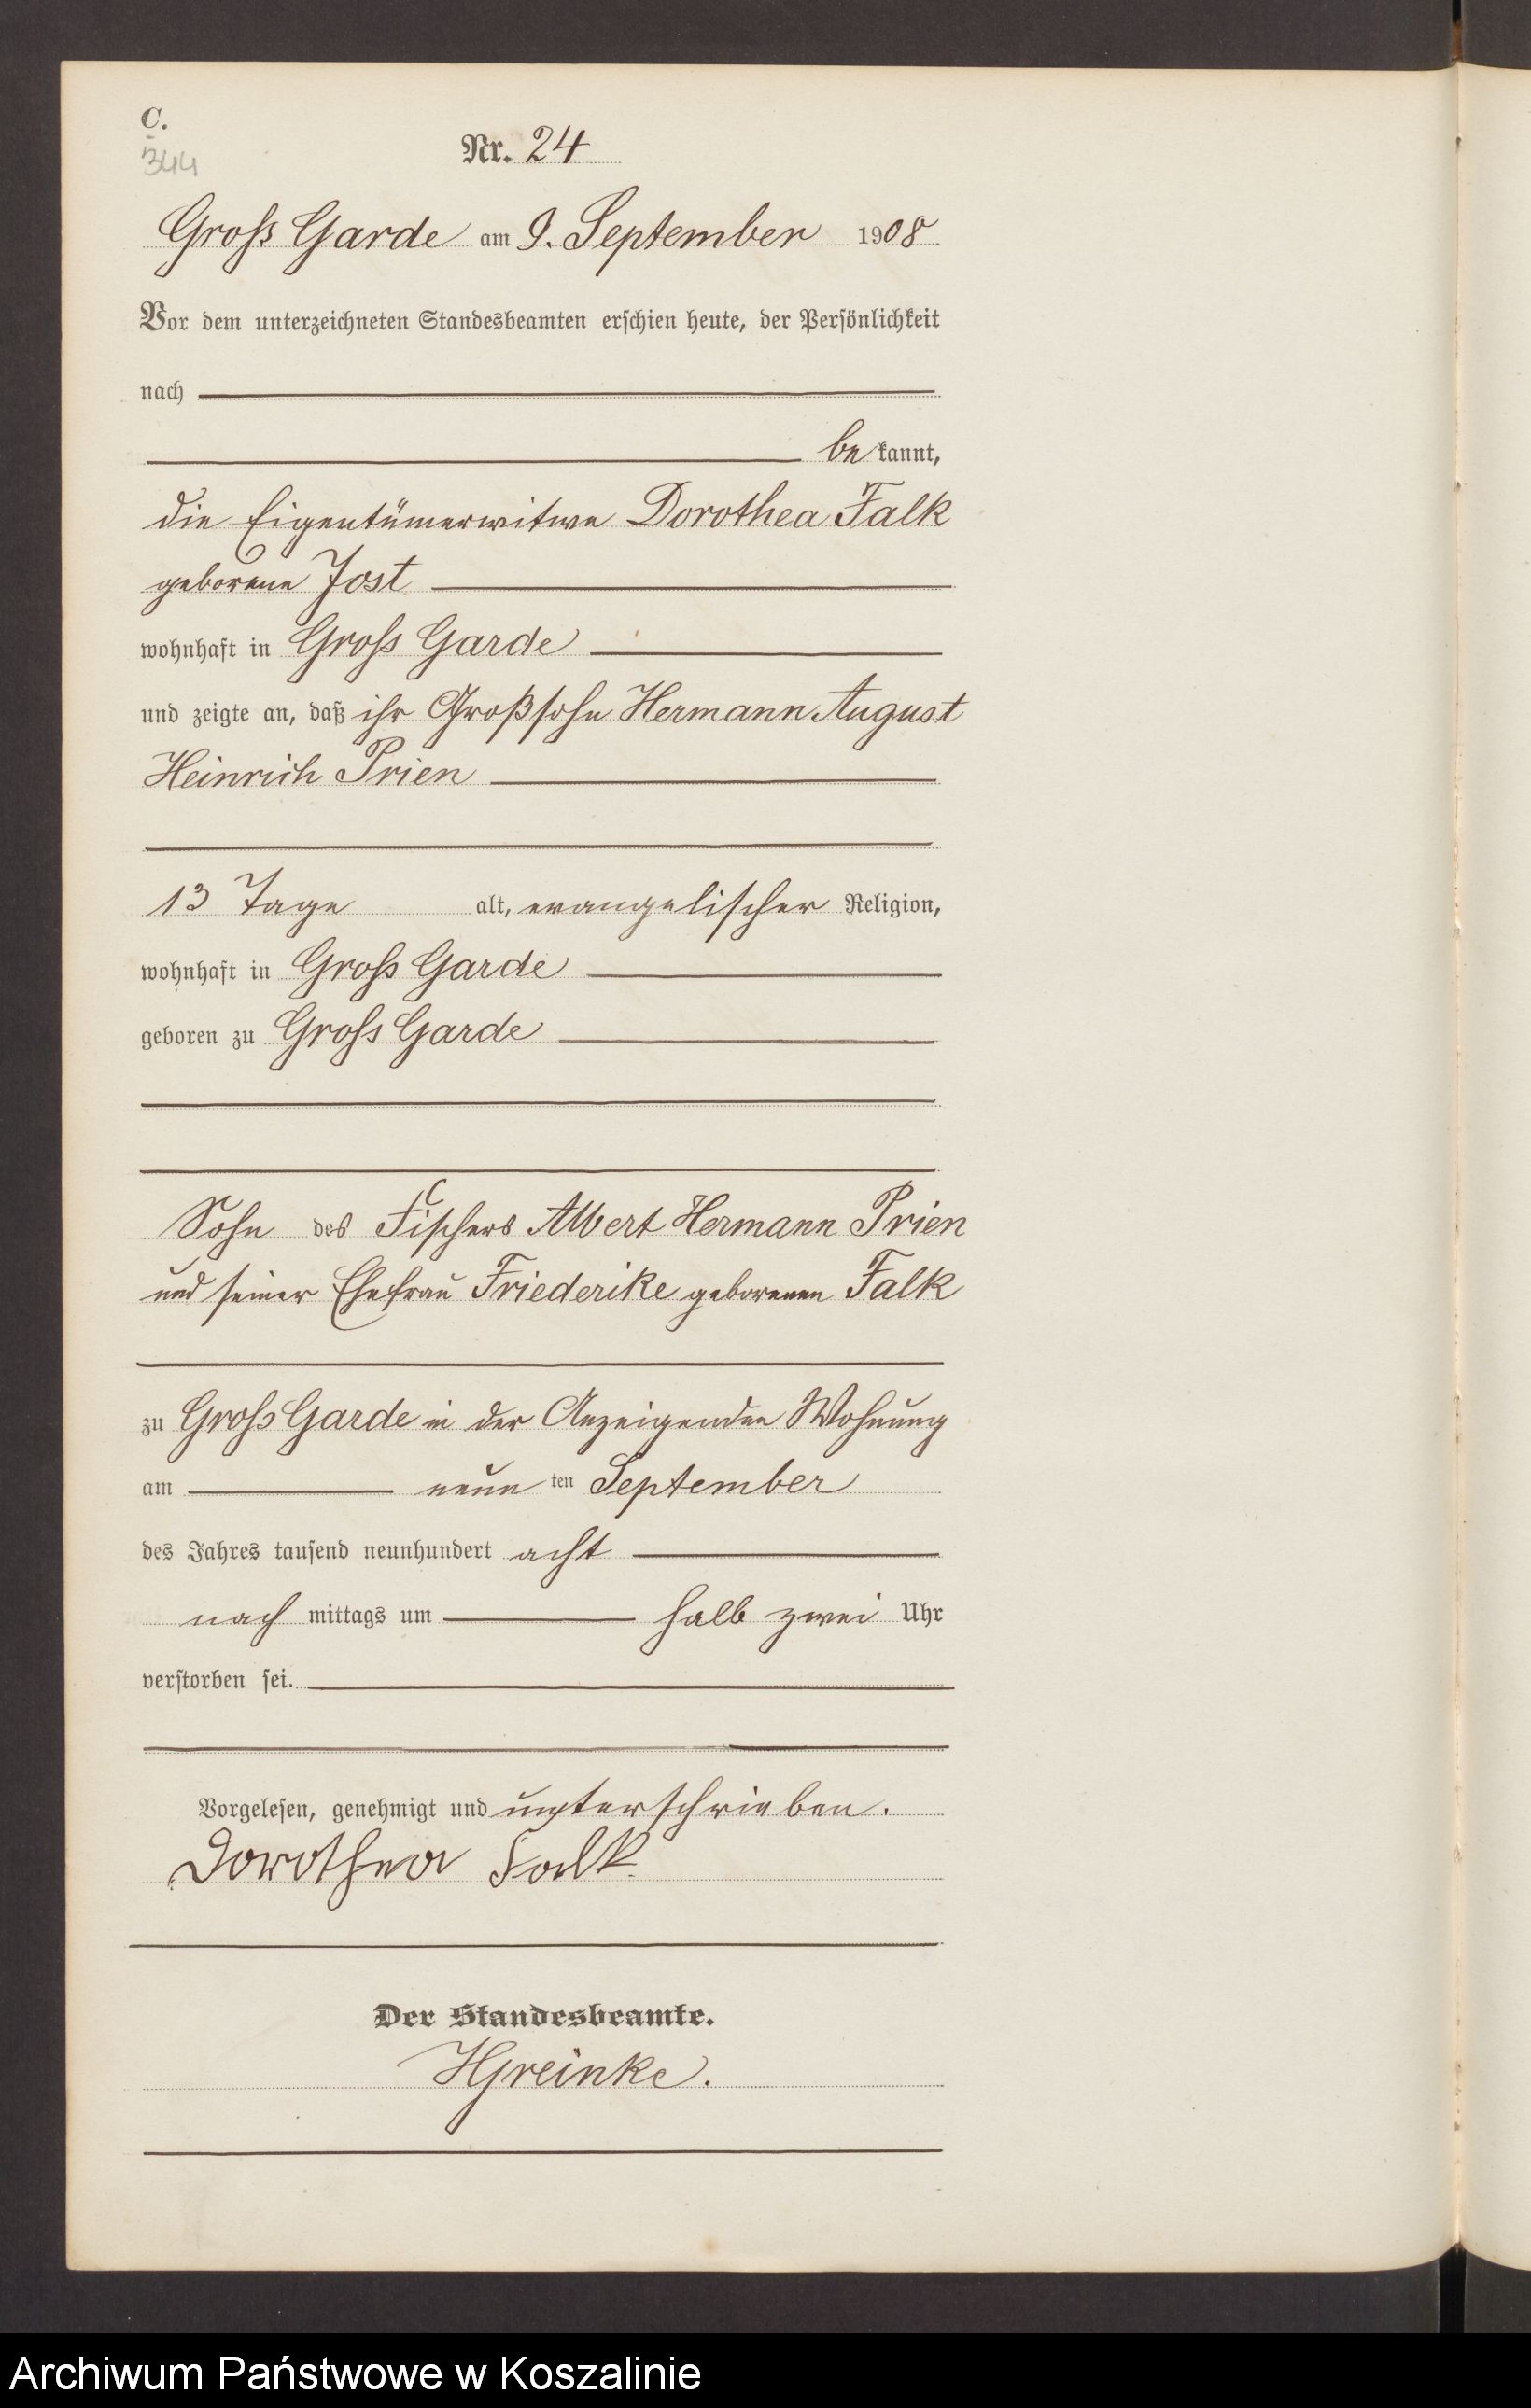 C.
344
Nr. 24
Gross Garde am 9. September 1908
Vor dem unterzeichneten Standesbeamten erschien heute, der Persönlichkeit
nach
be kannt,
die Eigentümerwitwe Dorothea Falk
geborene Jost
wohnhaft in Gross Garde
und zeigte an, daß ihr Großsohn Hermann August
Heinrich Prien
13 Tage alt, evangelischer Religion,
wohnhaft in Gross Garde
geboren zu Gross Garde
Sohn des Fischers Albert Hermann Prien
und seiner Ehefrau Friederike geborenen Falk
zu Gross Garde in der Anzeigenden Wohnung
am neun ten September
des Jahres tausend neunhundert acht
nach mittags um halb zwei Uhr
verstorben sei.
Vorgelesen, genehmigt und unterschrieben.
Dorothea Falk
Der Standesbeamte.
Archiwum Państwowe w Koszalinie